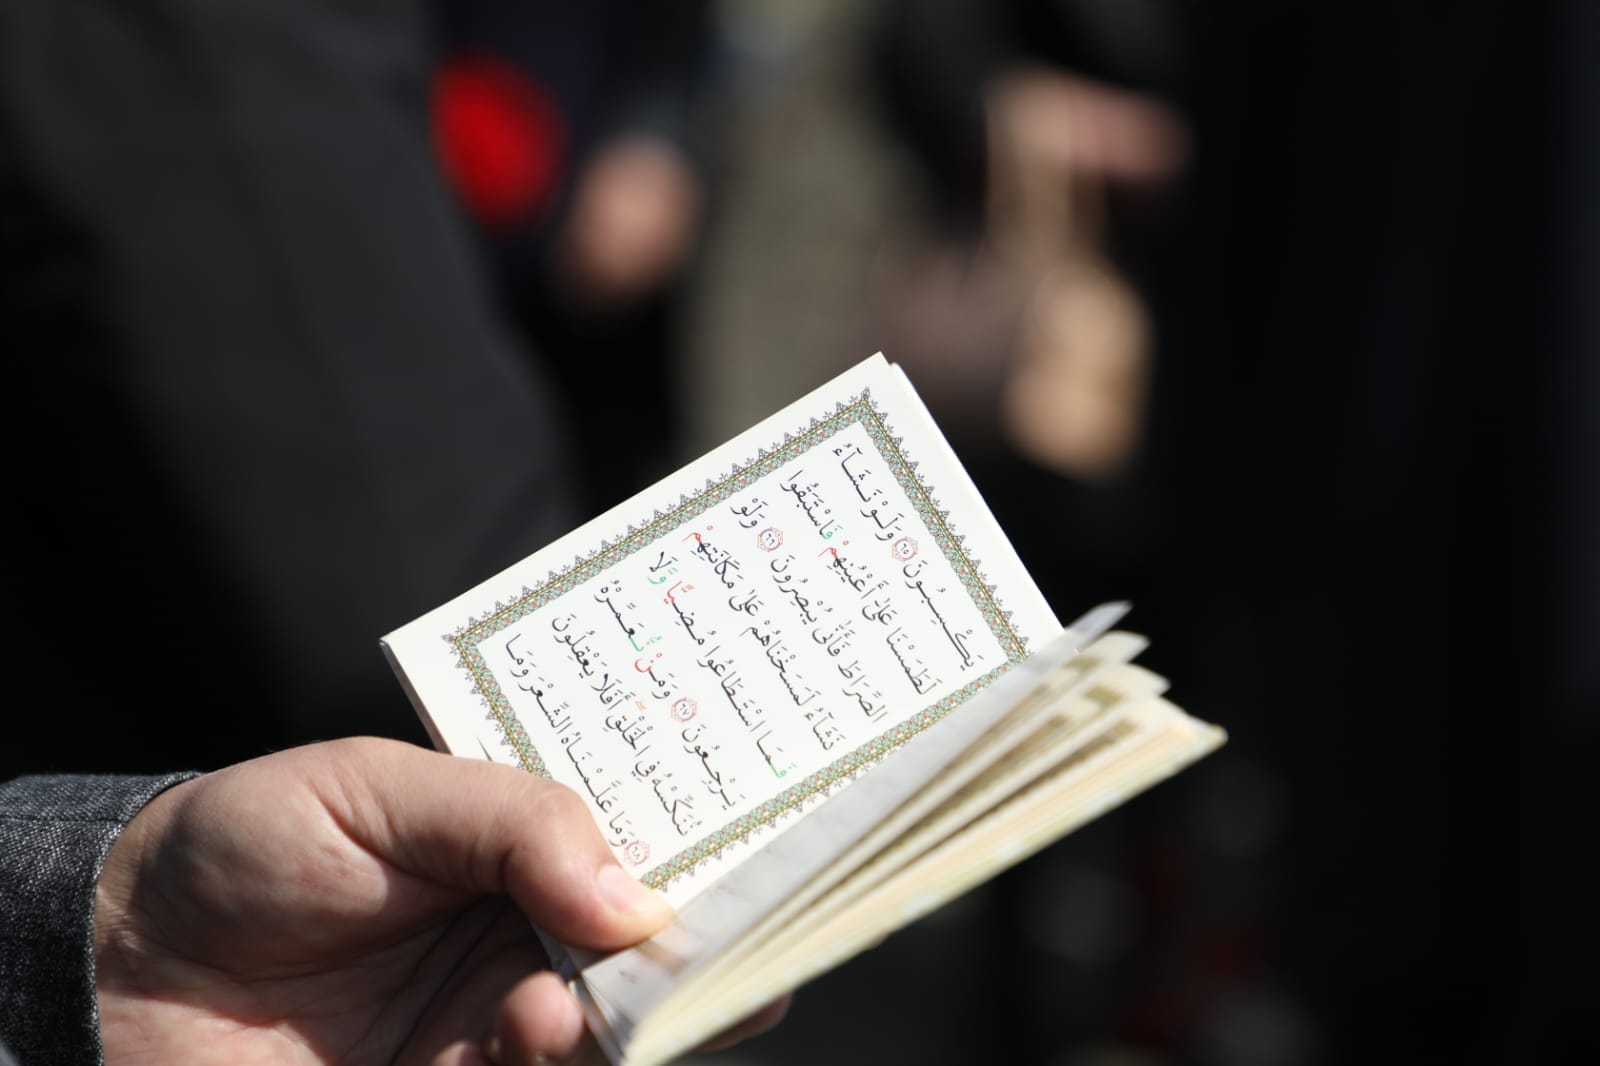 يَكْسِبُونَ ﴿٦٥﴾ وَلَوْ نَشَآءُ
لَطَمَسْنَا عَلَىٰٓ أَعْيُنِهِمْ فَاسْتَبَقُوا
الصِّرَاطَ فَأَنّٰى يُبْصِرُونَ ﴿٦٦﴾ وَلَوْ
نَشَآءُ لَمَسَخْنَاهُمْ عَلَىٰ مَكَانَتِهِمْ
فَمَا اسْتَطَاعُوا مُضِيًّا وَّلَا
يَرْجِعُونَ ﴿٦٧﴾ وَمَنْ نُّعَمِّرْهُ
نُنَكِّسْهُ فِي الْخَلْقِ أَفَلَا يَعْقِلُونَ
﴿٦٨﴾ وَمَا عَلَّمْنَاهُ الشِّعْرَ وَمَا